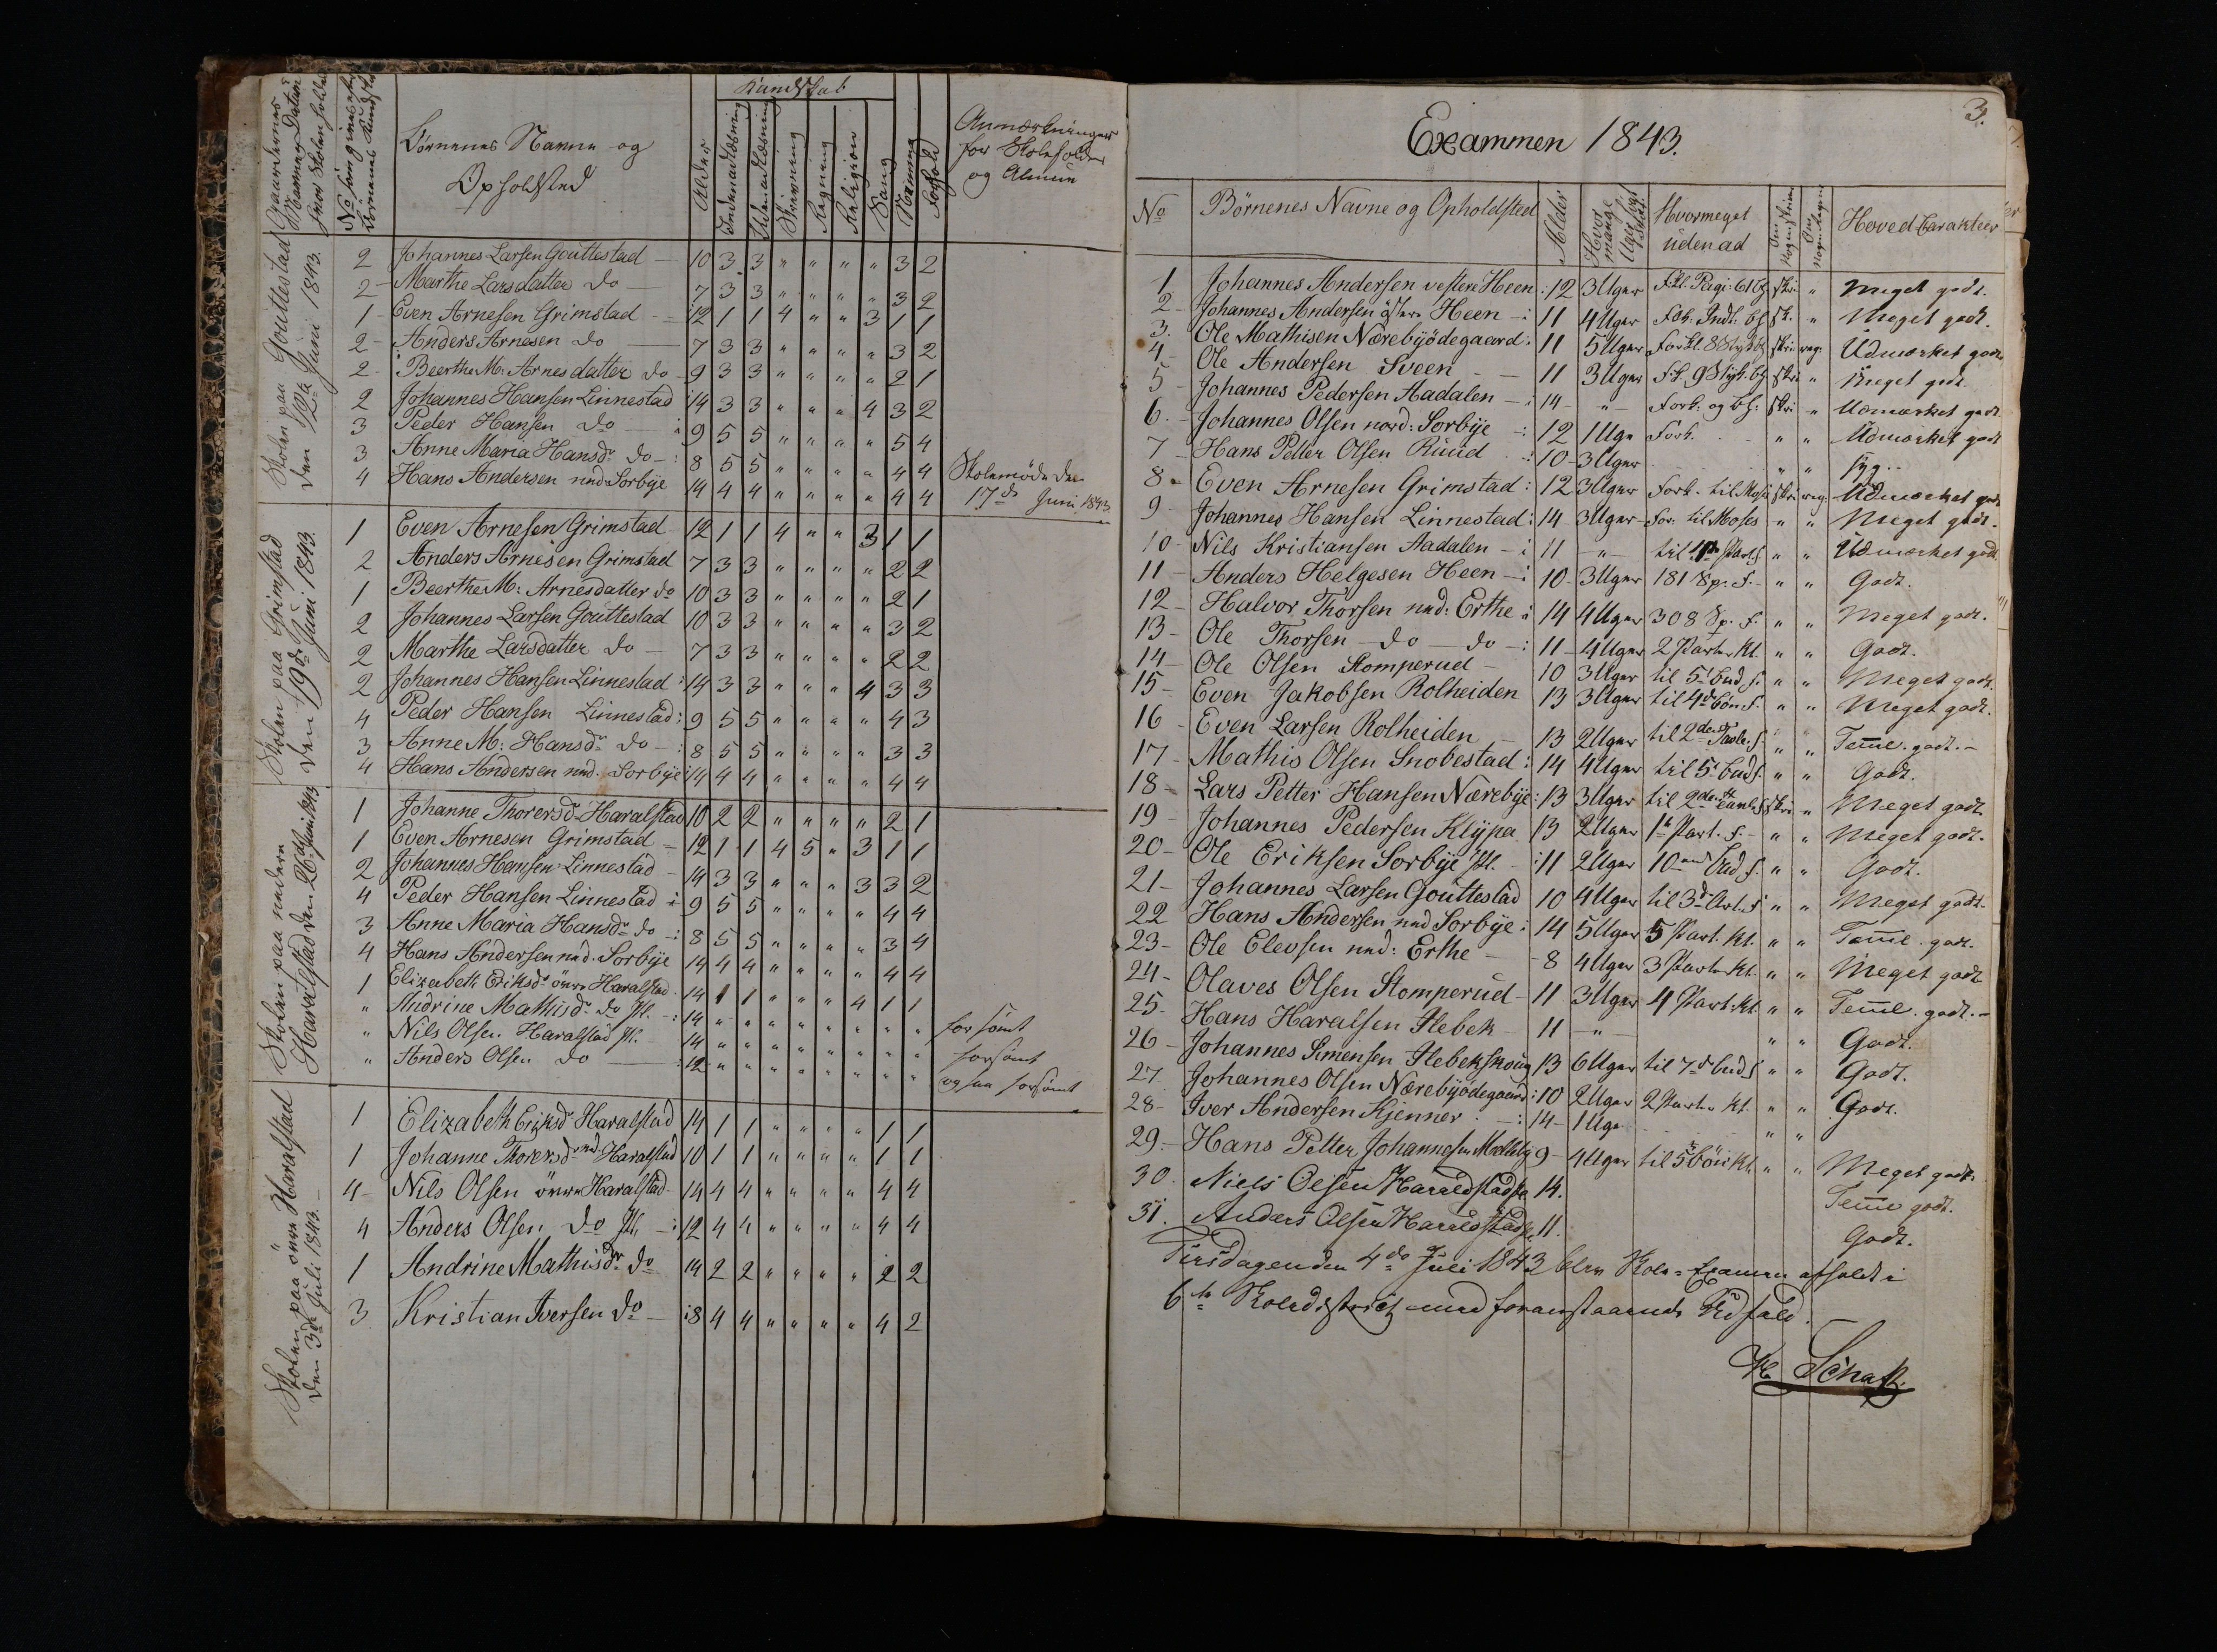 Kundskab
Gaardenes Navne Datum hvor Skolen holdes
No som gives efter Börnenes Kundskab
Börnenes Navne og
Opholdsted
Alder
Indenadlæsning
Udenadlæsning
Skrivning
Regning
Religion
Sang
Næmme
Forhold
Anmærkninger
for Skoleholder
og Almue
Skolen paa Gouttestad
den 12te Juni 1843.
2 Johannes Larsen Gouttestad - 10 3 3 " " " " 3 2
2 - Marthe Larsdatter do - 7 3 3 " " " " 3 2
1 - Even Arnesen Grimstad - 12 1 1 4 " " 3 1 1
2 - Anders Arnesen do - 7 3 3 " " " " 3 2
2 - Beerthe M: Arnesdatter do - 9 3 3 " " " " 2 1
2 Johannes Hansen Linnestad 14 3 3 " " " 4 3 2
3 Peder Hansen do - 9 5 5 " " " " 5 4
3 Anne Maria Hansdr do - 8 5 5 " " " " 4 4
4 Hans Andersen nud Sorbÿe 14 4 4 " " " " 4 4
Skolemöde den
17de Juni 1843
Skolen paa Grimstad
den 19de Juni 1843.
1 Even Arnesen Grimstad 12 1 1 4 " " 3 1 1
2 Anders Arnesen Grimstad 7 3 3 " " " " 2 2
1 Beerthe M: Arnesdatter do 10 3 3 " " " " 2 1
2 Johannes Larsen Gouttestad 10 3 3 " " " " 3 2
2 Marthe Larsdatter do - 7 3 3 " " " " 2 2
2 Johannes Hansen Linnestad : 14 3 3 " " " 4 3 3
4 Peder Hansen Linnestad : 9 5 5 " " " " 4 3
3 Anne M: Hansdr do - : 8 5 5 " " " " 3 3
4 Hans Andersen nud. Sorbÿe 14 4 4 " " " " 4 4
Skolen paa nedern
Haralstad den 26de Juni 1843
1 Johanne Thorersd Haralstad 10 2 2 " " " " 2 1
1 Even Arnesen Grimstad - 12 1 1 4 5 " 3 1 1
2 Johannes Hansen Linnestad - 14 3 3 " " " 3 3 2
4 Peder Hansen Linnestad : 9 5 5 " " " " 4 4
3 Anne Maria Hansdr do - : 8 5 5 " " " " 3 4
4 Hans Andersen nud. Sorbÿe 14 4 4 " " " " 4 4
1 Elizabeth Eriksdr övre Haralstad 14 1 1 " " " 4 1 1
" Andrine Mathisdr do Pl. - : 14 " " " " " " " "
" Nils Olsen Haralstad Pl. - 14 " " " " " " " " forsömt
" Anders Olsen do - : 12 " " " " " " " " forsömt
ogsaa forsömt
Skolen paa övre Haralstad
den 3de Juli 1843. -
1 Elizabeth Eriksd Haralstad 14 1 1 " " " " 1 1
1 Johanne Thorersd nud. Haralstad 10 1 1 " " " " 1 1
4 - Nils Olsen övre Haralstad - 14 4 4 " " " " 4 4
4 Anders Olsen do Pl. - : 12 4 4 " " " " 4 4
1 Andrine Mathisdr do 14 2 2 " " " " 2 2
3 Kristian Iversen do - 8 4 4 " " " " 4 2
3.
Exammen 1843.
No Börnenes Navne og Opholdsted Alder Hvor mange Uger Hvormeget udenad Hoved-Carakteer
1 Johannes Andersen vestere Heen : 12 3 Uger meget godt.
2 - Johannes Andersen östere Heen - : 11 4 Uger Meget godt.
3. Ole Mathisen Nærebÿödegaard : 11 5 Uger Udmærket godt
4 - Ole Andersen Sveen - 11 3 Uger Meget godt.
5 - Johannes Pedersen Aadalen - : 14 - " - Fork. og Udmærket godt
6. - Johannes Olsen nord: Sorbÿe - : 12 1 Uge Fork. " " Udmærket godt
7 - Hans Petter Olsen Ruud - : 10 - 3 Uger " " syg.
8 - Even Arnesen Grimstad : 12 3 Uger Fork. til Moses Udmærket godt
9 - Johannes Hansen Linnestad : 14 - 3 Uger For. til Moses - " " Meget godt.
10 - Nils Kristiansen Aadalen - : 11 - " - til 4de Part. f. " " Udmærket godt
11 - Anders Helgesen Heen - : 10 - 3 Uger 181 Sp. f. - " " Godt.
12 - Halvor Thorsen nud: Erthe : 14 4 Uger 308 Sp. f. " " Meget godt.
13 - Ole Thorsen - do - do - : 11 - 4 Uger 2 Parter Kl. " " Godt.
14 - Ole Olsen Stomperud - 10 3 Uger til 5te bud f. " " Meget godt.
15 - Even Jakobsen Rolheiden 13 3 Uger til 4de bön f. " " Meget godt.
16 - Even Larsen Rolheiden - 13 2 Uger til 2den Tavle. f. " " Temme. godt. -
17 - Mathis Olsen Snobestad : 14 4 Uger til 5te bud f. " " Godt.
18 - Lars Petter Hansen Nærebÿe : 13 3 Uger til 2den skri " Meget godt.
19 - Johannes Pedersen Klÿpa 13 2 Uger 1te Part. f. - " " Meget godt.
20 - Ole Eriksen Sorbÿe Pl. - : 11 2 Uger 10ende bud f. " " Godt.
21 - Johannes Larsen Gouttestad 10 4 Uger til 3de Art. f. " " Meget godt -
22 Hans Andersen nud Sorbÿe : 14 5 Uger 5 Part. Kl. " " Temme. godt.
23 - Ole Elevsen nud: Erthe - - 8 4 Uger 3 Parter Kl. " " Meget godt
24 - Olaves Olsen Stomperud - 11 3 Uger 4 Part. Kl. " " Temme. godt. -
25 - Hans Haralsen Hebek - 11 - " - " " Godt.
26 - Johannes Simensen Hebekskoug 13 6 Uger til 7de bud f. " " Godt.
27 Johannes Olsen Nærebÿödegaard : 10 2 Uger 2 Parter Kl. " " Godt.
28 - Iver Andersen Kjenner - : 14 - 1 Uge " "
29 - Hans Petter Johannesen Moltebÿ 9 - 4 Uger til 5te bön Kl. " " Meget godt.
30. Niels Olsen Haraldstad 14. Temme godt.
31. Anders Olsen Haraldstad 11. Godt.
Tirsdagen den 4de Juli 1843 blev Skole-Examen afholdt i
6te Skoledistrict med foranstaaende Udfald.